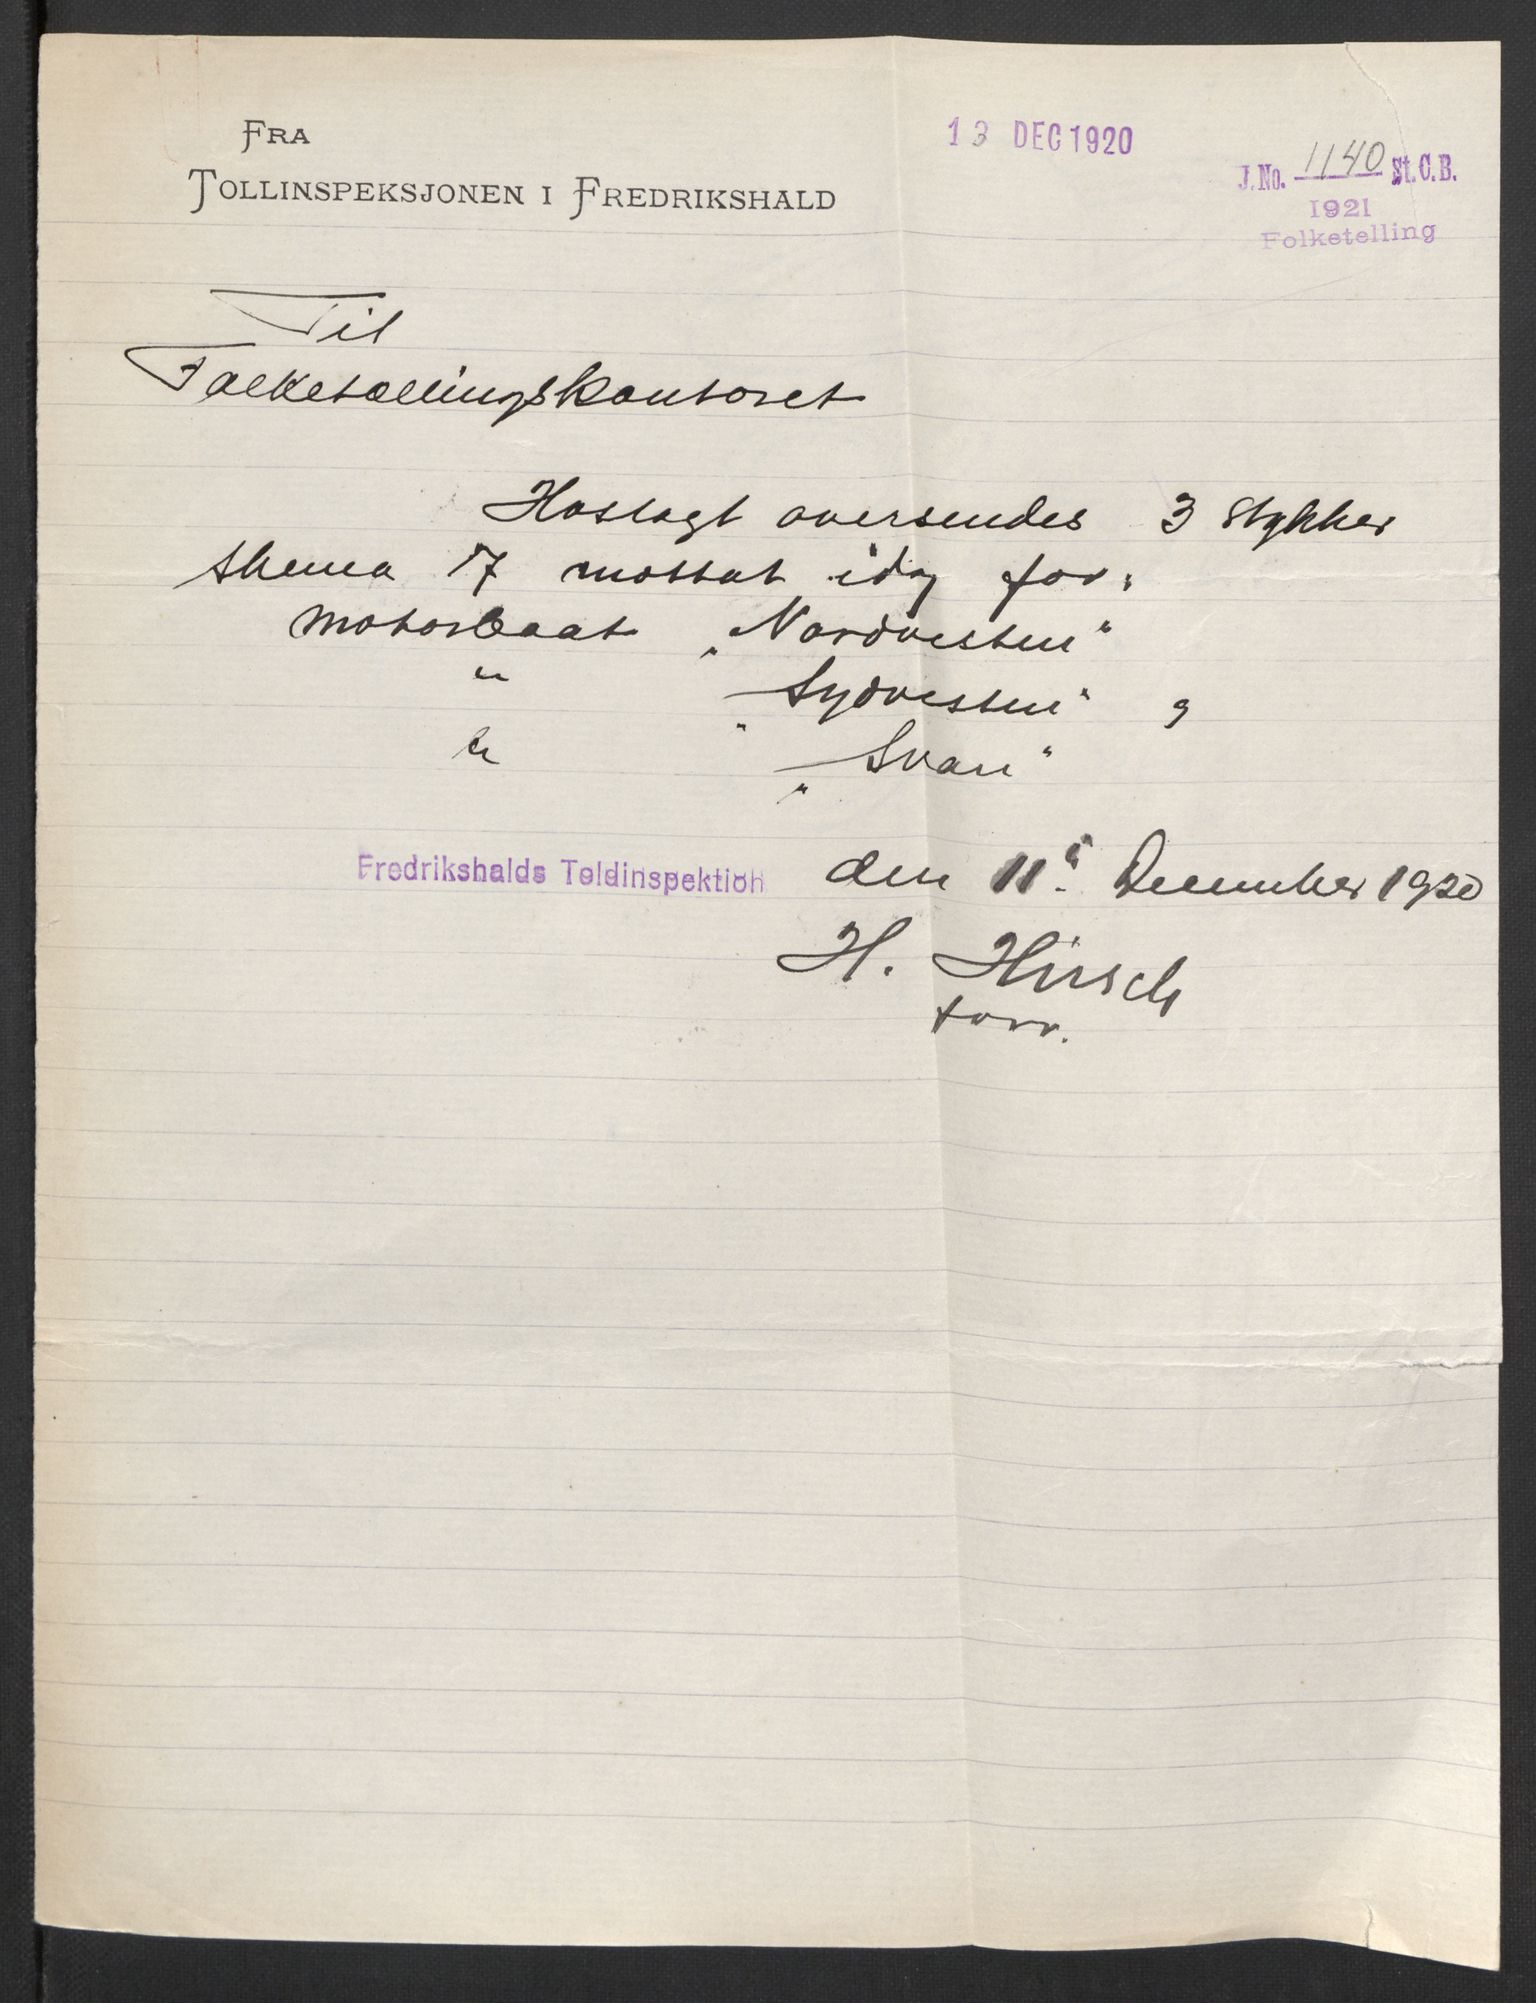 FRA
TOLLINSPEKSJONEN I FREDRIKSHALD
13 DEC 1920
J.No. 1140 St.C.B.
1921
Folketelling
Til
Folketællingskontoret
Hoslagt oversendes 3 stykker
skema 17 mottat idag for:
motorbaat „Nordvesten"
" „Sydvesten" og
" „Svan"
Fredrikshalds Toldinspektion den 11. December 1920
H. Hirsch